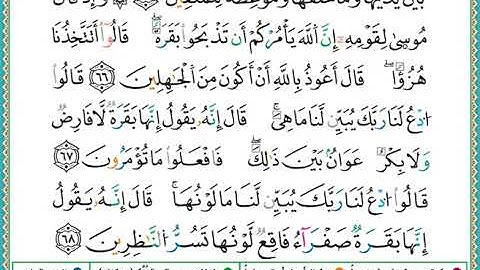 بَيْنَ يَدَيْهَا وَمَا خَلْفَهَا وَمَوْعِظَةً لِّلْمُتَّقِينَ ٦٥ وَإِذْ قَالَ
مُوسَىٰ لِقَوْمِهِۦٓ إِنَّ ٱللَّهَ يَأْمُرُكُمْ أَن تَذْبَحُوا۟ بَقَرَةً ۖ قَالُوٓا۟ أَتَتَّخِذُنَا
هُزُؤًا ۖ قَالَ أَعُوذُ بِٱللَّهِ أَنْ أَكُونَ مِنَ ٱلْجَـٰهِلِينَ ٦٦ قَالُوا۟
ٱدْعُ لَنَا رَبَّكَ يُبَيِّن لَّنَا مَا هِىَ ۚ قَالَ إِنَّهُۥ يَقُولُ إِنَّهَا بَقَرَةٌ لَّا فَارِضٌ
وَلَا بِكْرٌ عَوَانٌۢ بَيْنَ ذَٰلِكَ ۖ فَٱفْعَلُوا۟ مَا تُؤْمَرُونَ ٦٧
قَالُوا۟ ٱدْعُ لَنَا رَبَّكَ يُبَيِّن لَّنَا مَا لَوْنُهَا ۚ قَالَ إِنَّهُۥ يَقُولُ
إِنَّهَا بَقَرَةٌ صَفْرَآءُ فَاقِعٌ لَّوْنُهَا تَسُرُّ ٱلنَّـٰظِرِينَ ٦٨